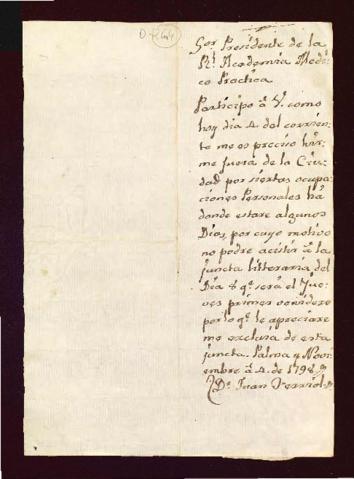 Sor Presidente de la
Rl. Academia Medi-
co Practica
Participo á V. como
hoy dia 4 del corrien-
te me es preciso hir-
me fuera de la Ciu-
dad por siertas ocupa-
ciones Personales há
donde estare algunos
Dias, por cuyo motivo
no podre acistir á la
juncta litteraria del
Dia 8 qe. será el Jue-
ves primer venidero
por lo qe. le apreciare
me escluia de esta
juncta. Palma y Novi-
embre á 4. de 1798
Dn. Juan